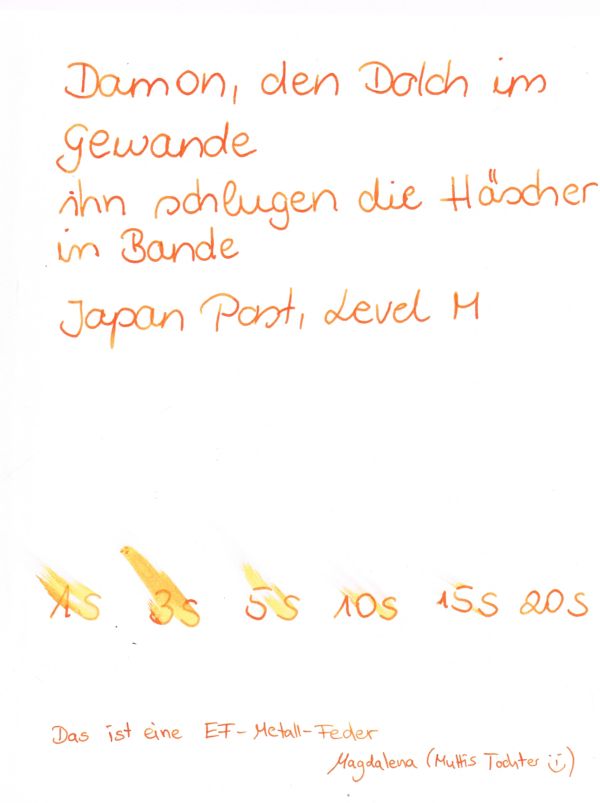 Damon, den Dolch im
Gewande
ihn schlugen die Häscher
in Bande
Japan Post, Level M
1s 3s 5s 10s 15s 20s
Das ist eine EF-Metall-Feder
Magdalena (Muttis Tochter ü)